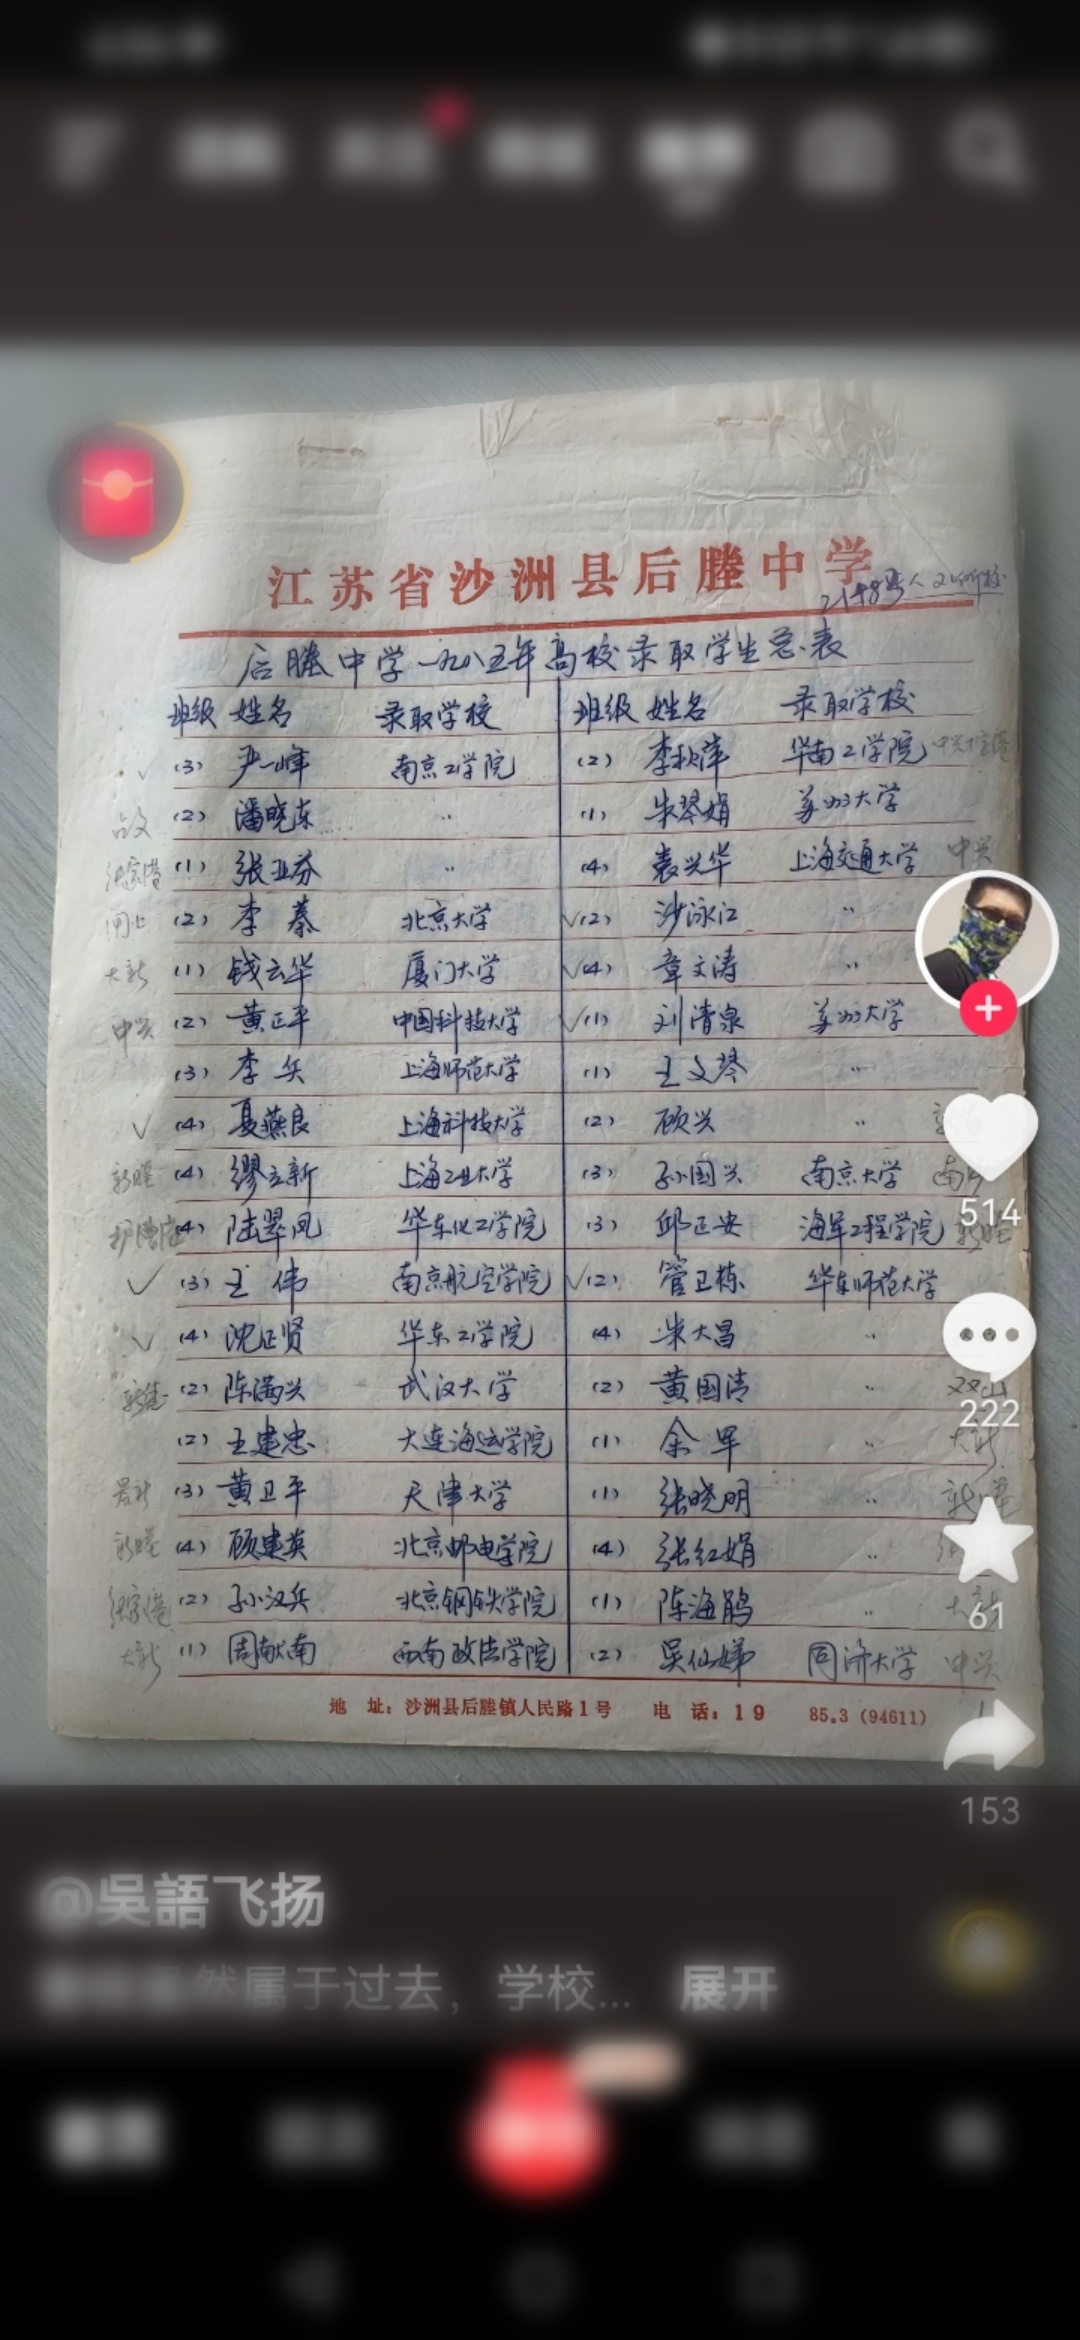 江苏省沙洲县后塍中学
后塍中学一九八五年高校录取学生总表
班级 姓名 录取学校 班级 姓名 录取学校
(3) 严一峰 南京工学院 (2) 李秋萍 华南工学院
(2) 潘晓东 〃 (1) 朱琴娟 苏州大学
(1) 张亚芬 〃 (4) 袁兴华 上海交通大学 中兴
(2) 李蓁 北京大学 √(2) 沙泳江 〃
大新 (1) 钱云华 厦门大学 √(4) 章文涛 〃
中兴 (2) 黄正平 中国科技大学 √(1) 刘清泉 苏州大学
(3) 李兵 上海师范大学 (1) 王文琴 〃
√ (4) 夏燕良 上海科技大学 (2) 顾兴 〃
(4) 缪立新 上海工业大学 (3) 孙国兴 南京大学
(4) 陆翠凤 华东化工学院 (3) 邱正安 海军工程学院
√ (3) 王伟 南京航空学院 √(2) 管卫栋 华东师范大学
√ (4) 沈正贤 华东工学院 (4) 朱大昌 〃
(2) 陈满兴 武汉大学 (2) 黄国清 〃 双山
(2) 王建忠 大连海运学院 (1) 余军 〃 大新
(3) 黄卫平 天津大学 (1) 张晓明 〃
(4) 顾建英 北京邮电学院 (4) 张红娟 〃
(2) 孙汉兵 北京钢铁学院 (1) 陈海鹃 〃
大新 (1) 周献南 西南政法学院 (2) 吴仙娣 同济大学 中兴
地 址：沙洲县后塍镇人民路1号 电 话：19 85.3 (94611)
514
222
61
153
@吳語飞扬
然属于过去，学校... 展开